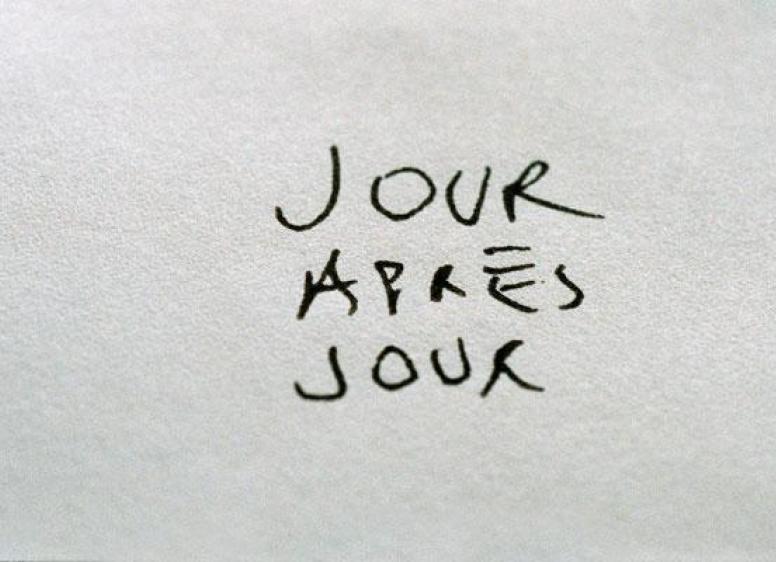 JOUR
APRÈS
JOUR